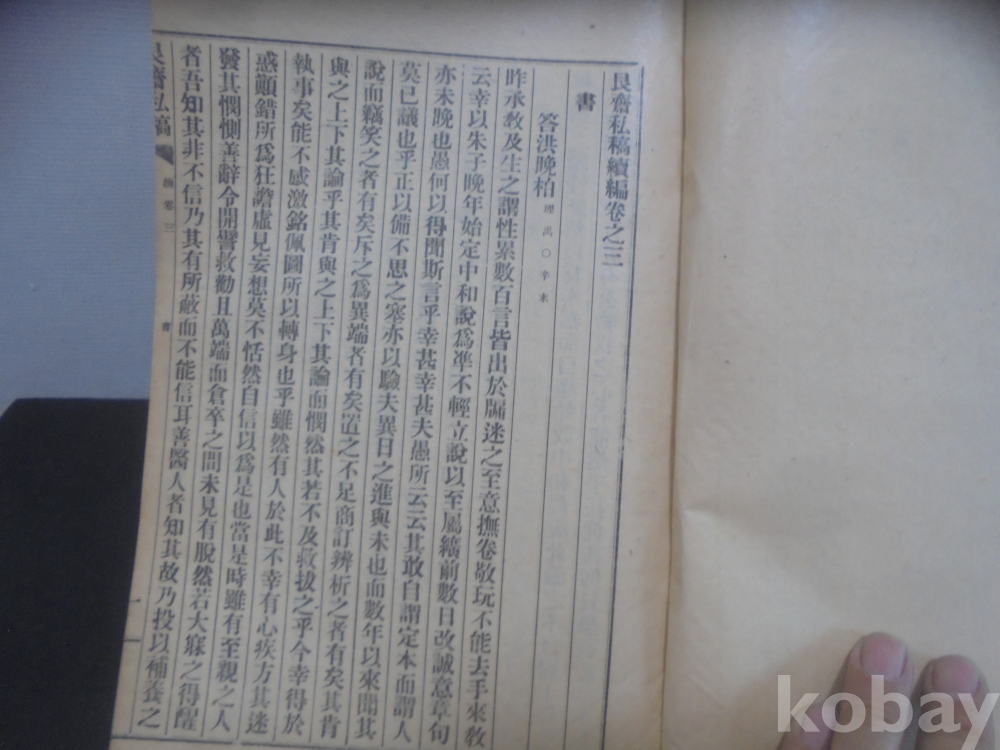 艮齋私稿續編卷之三
書
答洪晚柏 理禹○辛未
昨承敎及生之謂性累數百言皆出於牖迷之至意撫卷敬玩不能去手來敎
云幸以朱子晚年始定中和說爲準不輕立說以至屬纊前數日改誠意章句
亦未晚也愚何以得聞斯言乎幸甚幸甚夫愚所云云其敢自謂定本而謂人
莫已議也乎正以備不思之塞亦以驗夫異日之進與未也而數年以來聞其
說而竊笑之者有矣斥之爲異端者有矣置之不足商訂辨析之者有矣其肯
與之上下其論乎其肯與之上下其論而憫然其若不及救拔之乎今幸得於
執事矣能不感激銘佩圖所以轉身也乎雖然有人於此不幸有心疾方其迷
惑顚錯所爲狂譫虛見妄想莫不恬然自信以爲是也當是時雖有至親之人
發其憫惻善辭令開譬救勸且萬端而倉卒之間未見有脫然若大寐之得醒
者吾知其非不信乃其有所蔽而不能信耳善醫人者知其故乃投以補養之
艮齋私稿 卷三 書 一
kobay